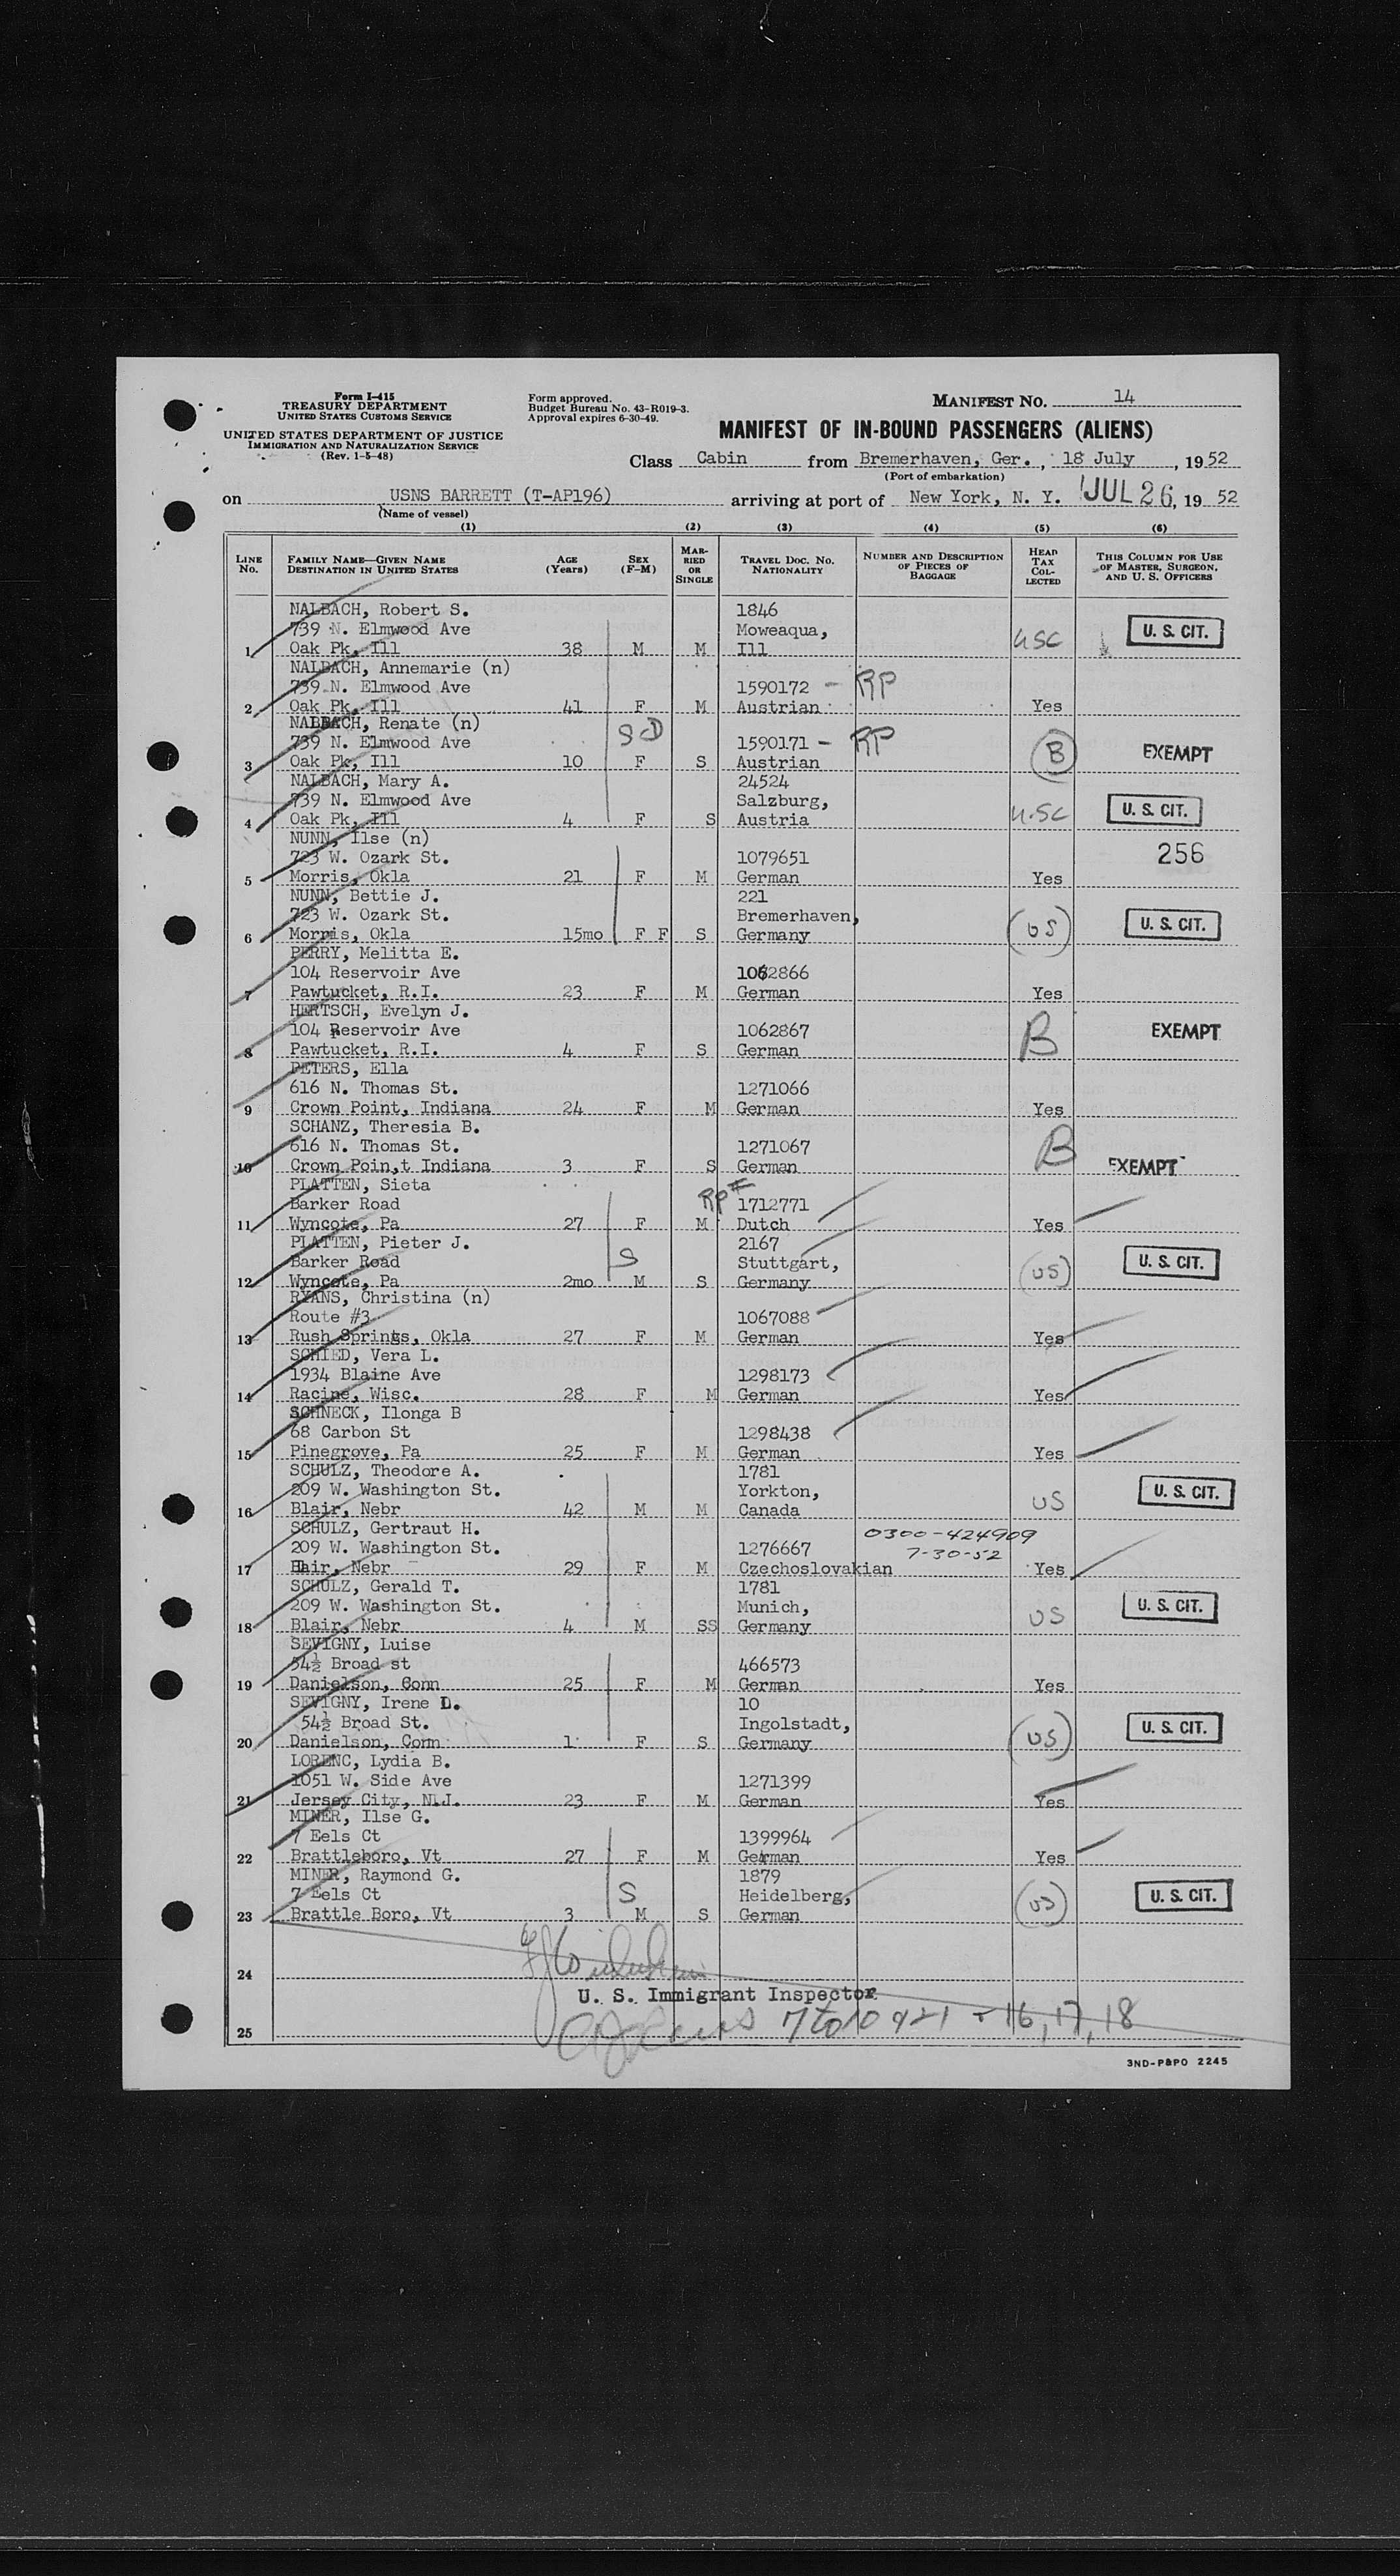 Form I-415
TREASURY DEPARTMENT
UNITED STATES CUSTOMS SERVICE
UNITED STATES DEPARTMENT OF JUSTICE
IMMIGRATION AND NATURALIZATION SERVICE
(Rev. 1-5-48)
Form approved.
Budget Bureau No. 43-R019-3.
Approval expires 6-30-49.
MANIFEST NO. 14
MANIFEST OF IN-BOUND PASSENGERS (ALIENS)
Class Cabin from Bremerhaven, Ger., 18 July, 1952
(Port of embarkation)
on USNS BARRETT (T-AP196) arriving at port of New York, N. Y. JUL 26, 1952
(Name of vessel)
(1) (2) (3) (4) (5) (6)
LINE No. FAMILY NAME—GIVEN NAME DESTINATION IN UNITED STATES AGE (Years) SEX (F-M) MARRIED OR SINGLE TRAVEL DOC. NO. NATIONALITY NUMBER AND DESCRIPTION OF PIECES OF BAGGAGE HEAD TAX COLLECTED THIS COLUMN FOR USE OF MASTER, SURGEON, AND U. S. OFFICERS
NALBACH, Robert S. 1846
739 N. Elmwood Ave Moweaqua, USC U. S. CIT.
1 Oak Pk, Ill 38 M M Ill
NALBACH, Annemarie (n)
739 N. Elmwood Ave 1590172 - RP
2 Oak Pk, Ill 41 F M Austrian Yes
NALBACH, Renate (n) SD
739 N. Elmwood Ave 1590171 - RP B EXEMPT
3 Oak Pk, Ill 10 F S Austrian
NALBACH, Mary A. 24524
739 N. Elmwood Ave Salzburg, U.SC U. S. CIT.
4 Oak Pk, Ill 4 F S Austria
NUNN, Ilse (n)
723 W. Ozark St. 1079651 256
5 Morris, Okla 21 F M German Yes
NUNN, Bettie J. 221
723 W. Ozark St. Bremerhaven, US U. S. CIT.
6 Morris, Okla 15mo F F S Germany
PERRY, Melitta E.
104 Reservoir Ave 1062866
7 Pawtucket, R.I. 23 F M German Yes
HERTSCH, Evelyn J.
104 Reservoir Ave 1062867 B EXEMPT
8 Pawtucket, R.I. 4 F S German
PETERS, Ella
616 N. Thomas St. 1271066
9 Crown Point, Indiana 24 F M German Yes
SCHANZ, Theresia B.
616 N. Thomas St. 1271067 B EXEMPT
10 Crown Poin,t Indiana 3 F S German
PLATTEN, Sieta
Barker Road 1712771
11 Wyncote, Pa 27 F M Dutch Yes
PLATTEN, Pieter J. 2167
Barker Road S Stuttgart, US U. S. CIT.
12 Wyncote, Pa 2mo M S Germany
RYANS, Christina (n)
Route #3 1067088
13 Rush Springs, Okla 27 F M German Yes
SCHIED, Vera L.
1934 Blaine Ave 1298173
14 Racine, Wisc. 28 F M German Yes
SCHNECK, Ilonga B
68 Carbon St 1298438
15 Pinegrove, Pa 25 F M German Yes
SCHULZ, Theodore A. 1781
209 W. Washington St. Yorkton, US U. S. CIT.
16 Blair, Nebr 42 M M Canada
SCHULZ, Gertraut H. 0300-424909
209 W. Washington St. 1276667 7-30-52
17 Blair, Nebr 29 F M Czechoslovakian Yes
SCHULZ, Gerald T. 1781
209 W. Washington St. Munich, US U. S. CIT.
18 Blair, Nebr 4 M SS Germany
SEVIGNY, Luise
54½ Broad st 466573
19 Danielson, Conn 25 F M German Yes
SEVIGNY, Irene D. 10
54½ Broad St. Ingolstadt, US U. S. CIT.
20 Danielson, Conn 1 F S Germany
LORENC, Lydia B.
1051 W. Side Ave 1271399
21 Jersey City, N.J. 23 F M German Yes
MINER, Ilse G.
7 Eels Ct 1399964
22 Brattleboro, Vt 27 F M German Yes
MINER, Raymond G. 1879
7 Eels Ct S Heidelberg, US U. S. CIT.
23 Brattle Boro, Vt 3 M S German
24
U. S. Immigrant Inspector
25 7 to 10 & 21 + 16, 17, 18
3ND-P&PO 2245